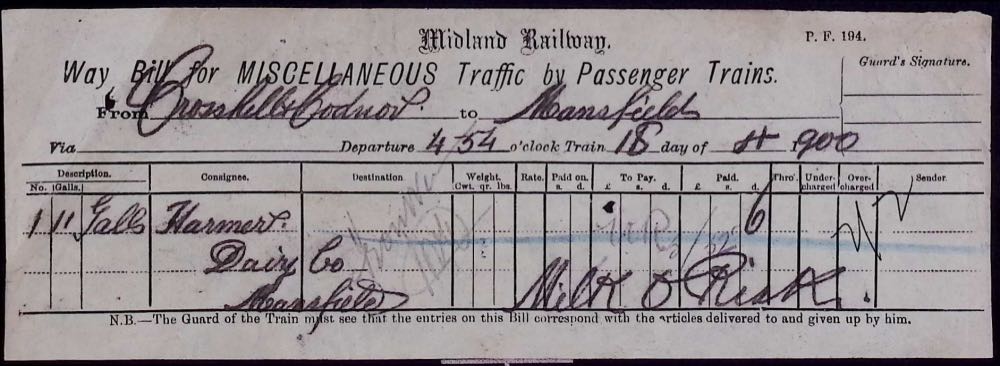 Midland Railway.
P. F. 194.
Way Bill for MISCELLANEOUS Traffic by Passenger Trains.
Guard's Signature.
From Crosshill & Codnor to Mansfield
Via Departure 4 54 o'clock Train 18 day of 4 1900
Description. Consignee. Destination Weight. Rate. Paid on. To Pay. Paid. Thro'. Under- charged Over- charged Sender.
No. Galls. Cwt. qr. lbs. s. d. £ s. d. £ s. d.
1 11 Galls Harmer 6
Dairy Co
Mansfield Milk O Risk.
N.B.—The Guard of the Train must see that the entries on this Bill correspond with the articles delivered to and given up by him.